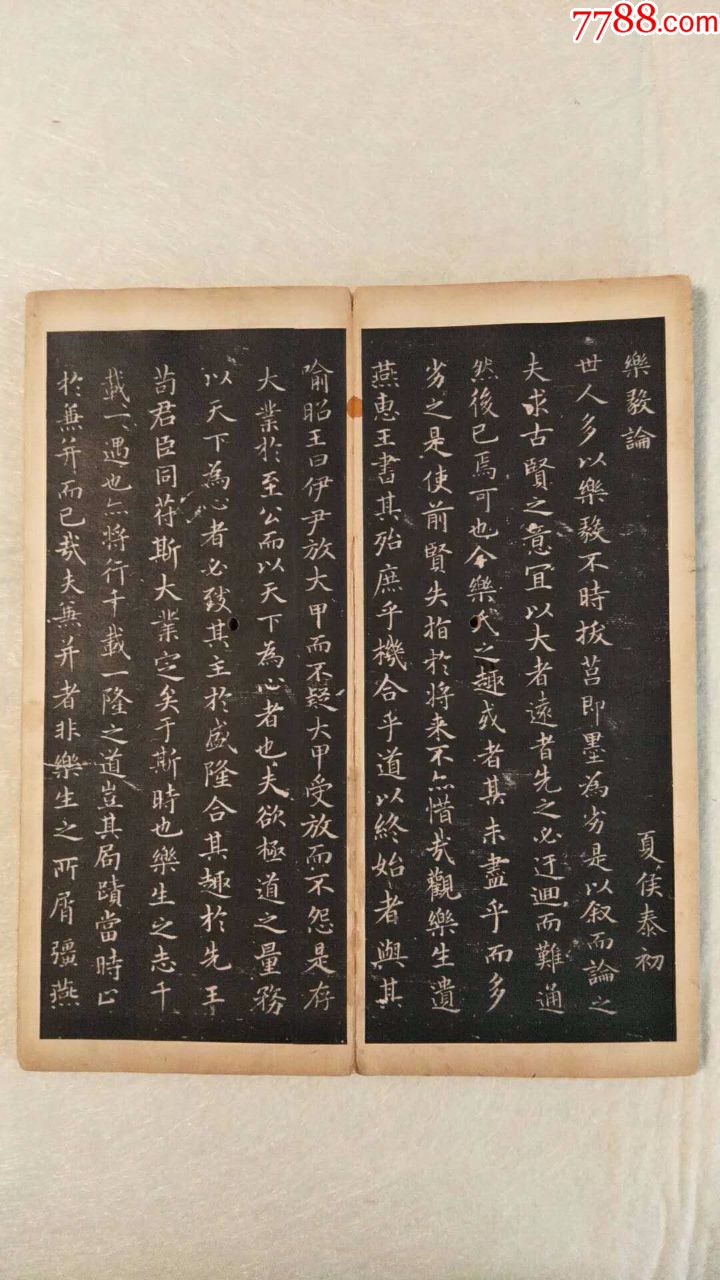 7788.com
樂毅論
夏侯泰初
世人多以樂毅不時拔莒即墨為劣是以叙而論之
夫求古賢之意冝以大者遠者先之必迂迴而難通
然後已焉可也今樂氏之趣或者其未盡乎而多
劣之是使前賢失指於将来不亦惜哉觀樂生遺
燕惠王書其殆庶乎機合乎道以終始者與其
喻昭王曰伊尹放大甲而不疑大甲受放而不怨是存
大業於至公而以天下為心者也夫欲極道之量務
以天下為心者必致其主於盛隆合其趣於先王
苟君臣同苻斯大業定矣于斯時也樂生之志千
載一遇也亦将行千載一隆之道豈其局蹟當時止
於兼并而已哉夫兼并者非樂生之所屑彊燕